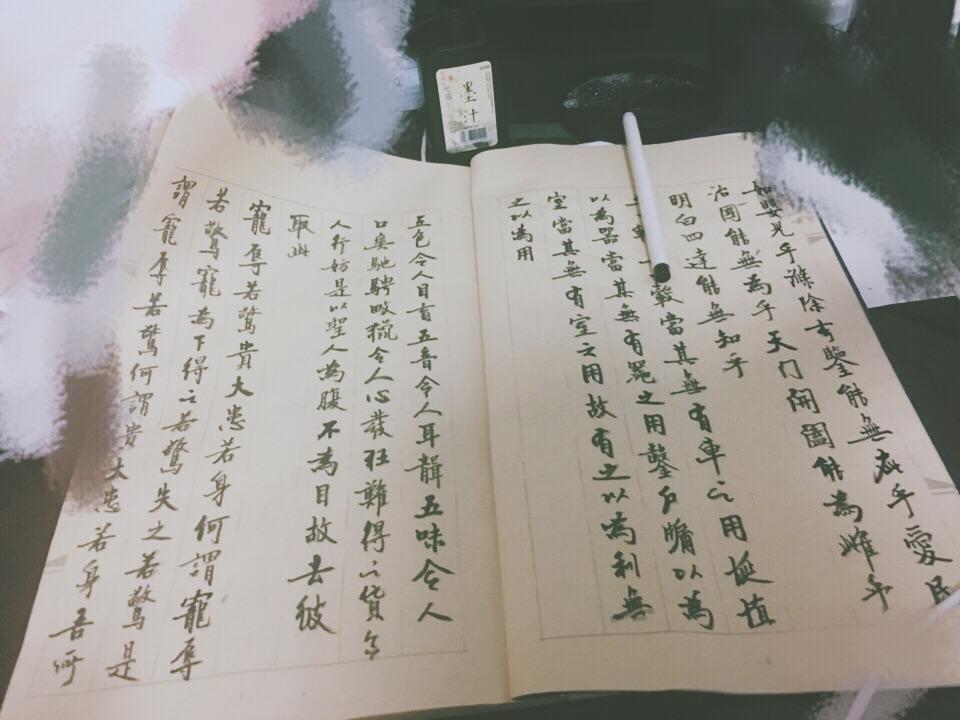 墨汁
如嬰兒乎滌除玄鑒能無疵乎愛民
治國能無為乎天门開闔能為雌乎
明白四達能無知乎
轂當其無有車之用埏埴
以為器當其無有器之用鑿户牖以為
室當其無有室之用故有之以為利無
之以為用
五色令人目盲五音令人耳聾五味令人
口爽馳騁畋獵令人心發狂難得之貨令
人行妨是以聖人為腹不為目故去彼
取此
寵辱若驚貴大患若身何謂寵辱
若驚寵為下得之若驚失之若驚是
謂寵辱若驚何謂貴大患若身吾所